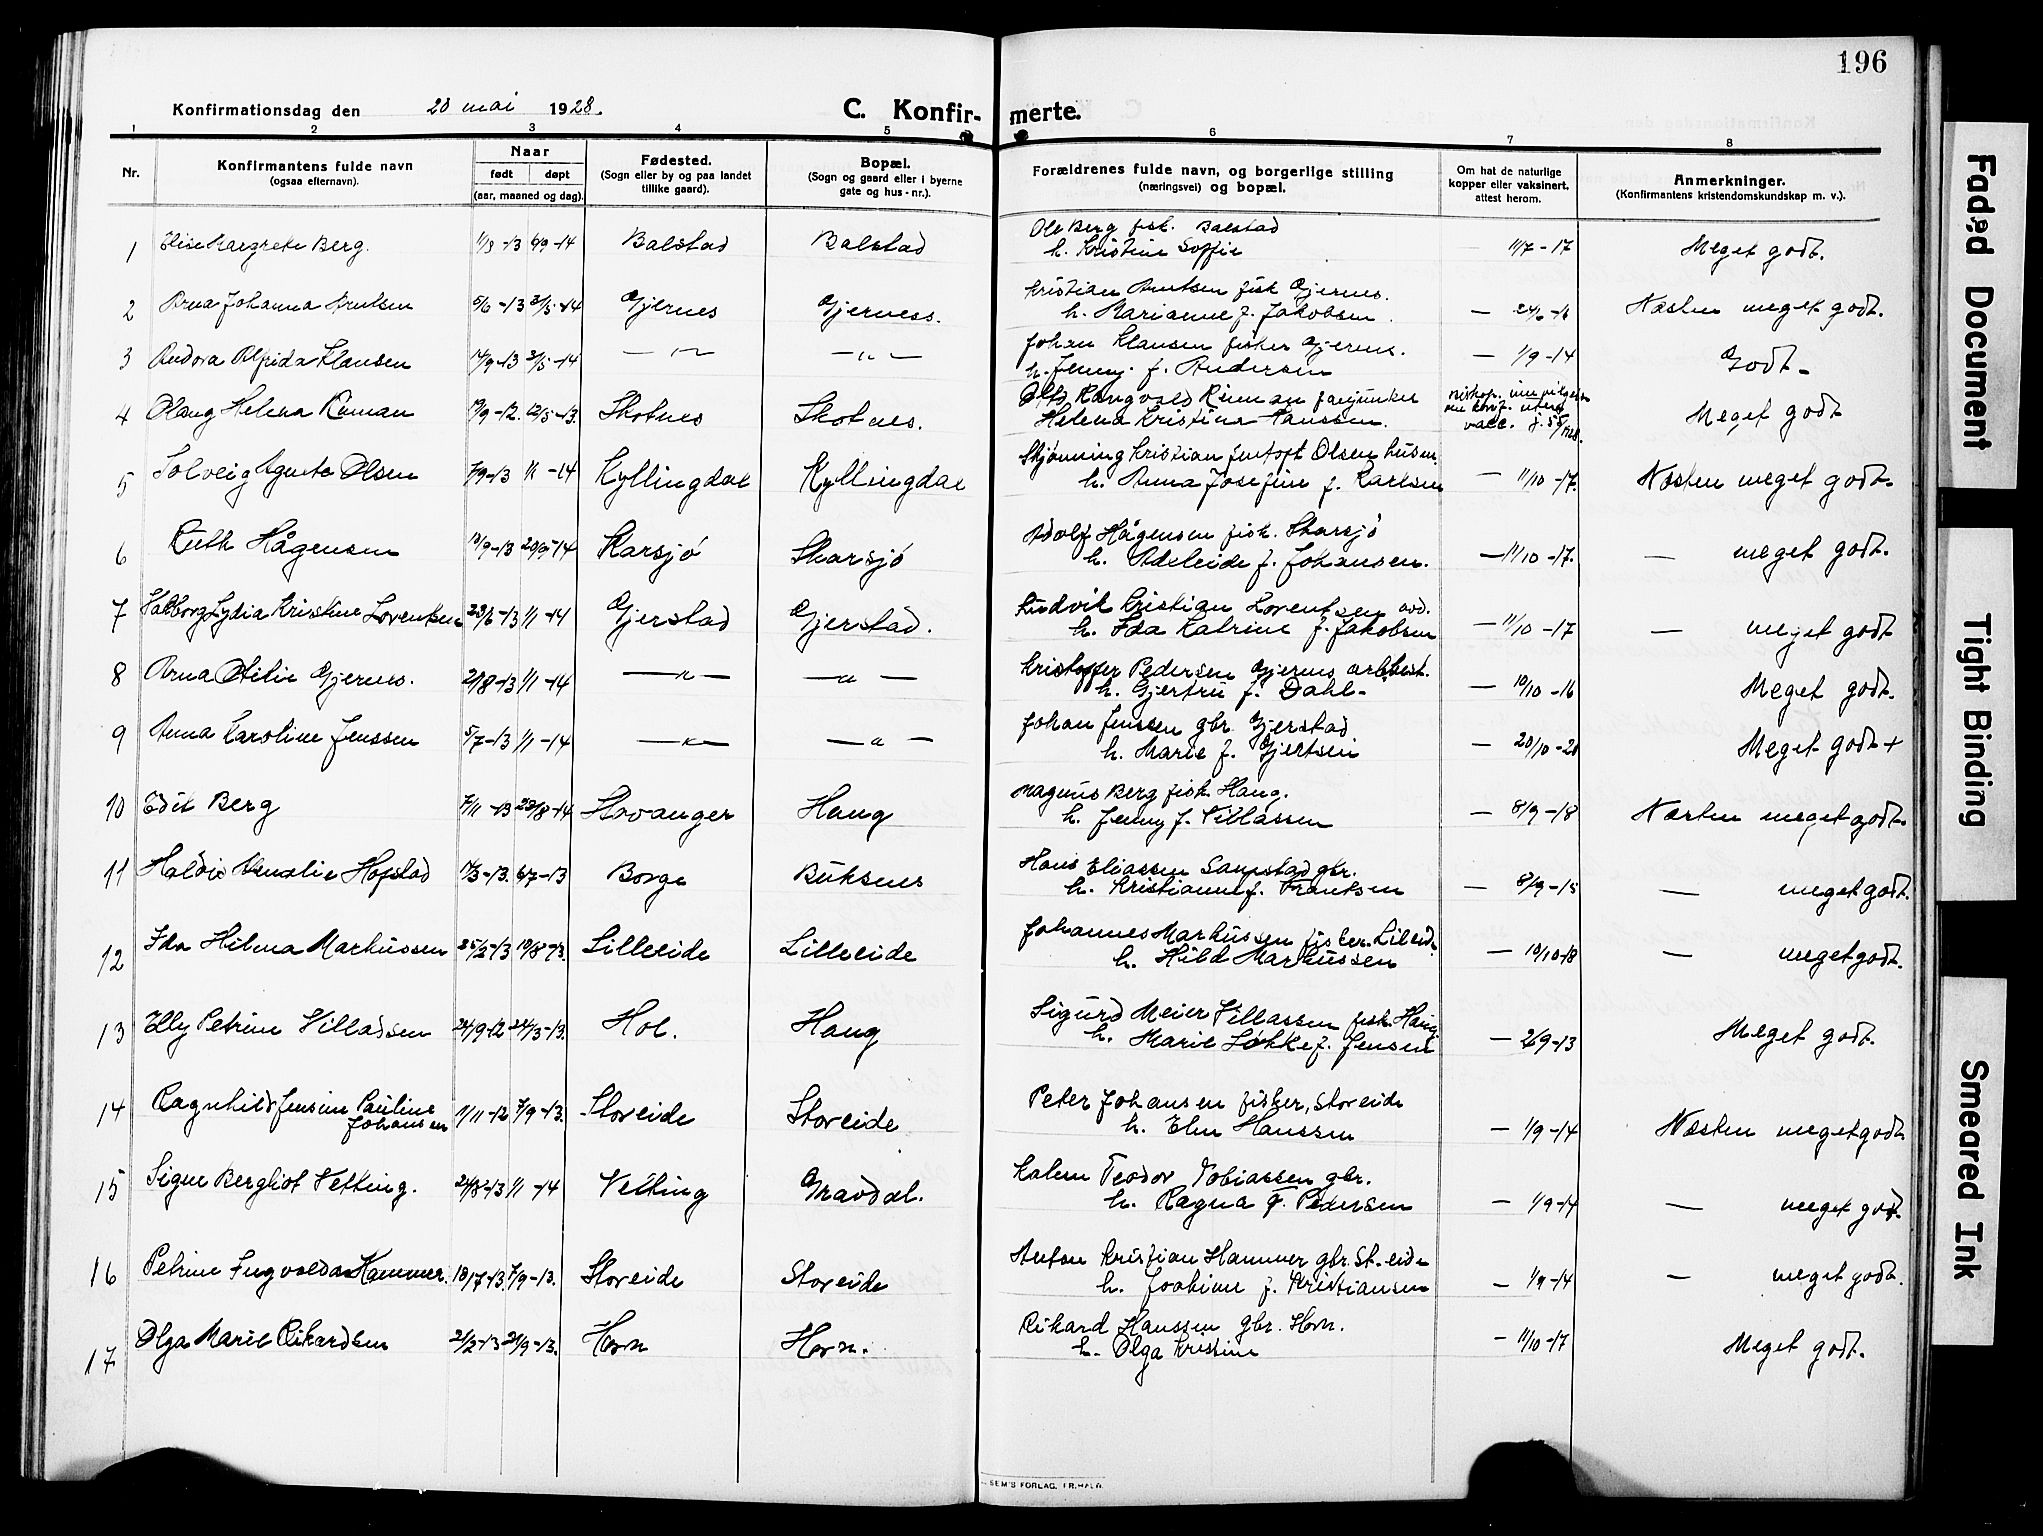 196
Konfirmationsdag den 20 mai 1928.
C. Konfir- merte.
1 2 3 4 5 6 7 8
Nr.
Konfirmantens fulde navn
(ogsaa efternavn).
Naar
født døpt
(aar, maaned og dag).
Fødested.
(Sogn eller by og paa landet
tillike gaard).
Bopæl.
(Sogn og gaard eller i byerne
gate og hus-nr.).
Forældrenes fulde navn, og borgerlige stilling
(næringsvei) og bopæl.
Om hat de naturlige
kopper eller vaksinert,
attest herom.
Anmerkninger.
(Konfirmantens kristendomskundskap m. v.).
1 Elise Margrete Berg. 1/3-13 6/9-14 Balstad Balstad
Ole Berg fisk. Balstad
h. Kristine Soffie 11/7-17 Meget godt.
2 Arna Johanna Arntsen 5/6-13 3/5-14 Gjernes Gjerness.
Kristian Arntsen fisk Gjernes.
h. Marianne f. Jakobsen. — 24/6-16 Næsten meget godt.
3 Andora Alfrida Klausen 14/9-13 3/5-14 — " — — " —
Johan Klausen fisker Gjernes.
h. Jenny. f. Andersen — 1/9-14 Godt-
4 Olaug Helena Riman 19/9-12. 12/5-13. Skotnes Skotnes.
Rangvald Riman fanejunker
Helena Kristina Hanssen.
vacc. Meget godt
5 Solveig Agnete Olsen 7/9-13 1/1-14 Kyllingdal Kyllingdal
Skjønning Kristian Jentoft Olsen husm.
h. Anna Josefine f. Karlsen — 11/10-17. Næsten meget godt.
6 Ruth Hågensen 13/9-13 20/9-14 Karsjö Skarsjö
Adolf Hågensen fisk. Skarsjö
h. Adeleide f. Johansen. — 11/10-17. — meget godt.
7 Valborg Lydia Kristine Lorentsen 23/6-13 1/1-14 Gjerstad Gjerstad.
Ludvik Kristian Lorentsen
h. Ida Katrine f. Jakobsen — 11/10-17 — meget godt
8 Arna Otilie Gjernes. 21/8-13 1/1-14 — " — — " —
Kristoffer Pedersen Gjernes arbeist.
h. Gjertru f. Dahl- — 10/10-16 Meget godt.
9 Anna Karoline Jenssen 5/7-13 1/1-14 — " — — " —
Johan Jenssen gbr. Gjerstad
h. Marie f. Gjertsen — 20/10-20 Meget godt +
10 Edit Berg 7/11-13 23/8-14 Stavanger Haug
Magnus Berg fisk Haug.
h. Jenny f. Villassen — 8/9-18 Næsten meget godt.
11 Haldis Amalie Hofstad 17/3-13. 6/7-13 Borge Buksnes
Hans Eliassen Sandstad gbr.
h. Kristianne f. Frantsen — 8/9-15 — meget godt.
12 Ida Hilma Markussen 25/2-13 10/8-13. Lilleeide Lilleeide
Johannes Markussen fisker. Lileid.
h. Hild Markussen — 10/10-18 — meget godt.
13 Elly Petrine Villadsen 24/9-12 24/3-13. Hol. Haug
Sigurd Meier Villassen fisk. Haug
h. Marie Løkke f. Jensen — 2/9-13 Meget godt.
14 Ragnhild Jensine Pauline
Johansen 11/11-12 7/9-13. Storeide Storeide
Peter Johansen fisker, Storeide
h. Elen Hanssen — 1/9-14 Næsten meget godt
15 Signe Bergliot Vetting. 24/8-13 1/1-14 Vetting Gravdal.
Kalern Teodor Tobiassen gbr.
h. Ragna f. Pedersen — 1/9-14 — meget godt.
16 Petrine Ingvalda Hammer. 18/7-13. 7/9-13. Storeide Storeide
Anton Kristian Hammer gbr. St.eide
h. Joakime f. Kristiansen — 1/9-14 — meget godt.
17 Olga Marie Rikardsen 21/2-13 21/9-13. Horn Horn.
Rikard Hanssen gbr. Horn.
h. Olga Kristine — 11/10-17 Meget godt.
SEM'S FORLAG, FR.HALD.
Faded Document
Tight Binding
Smeared Ink